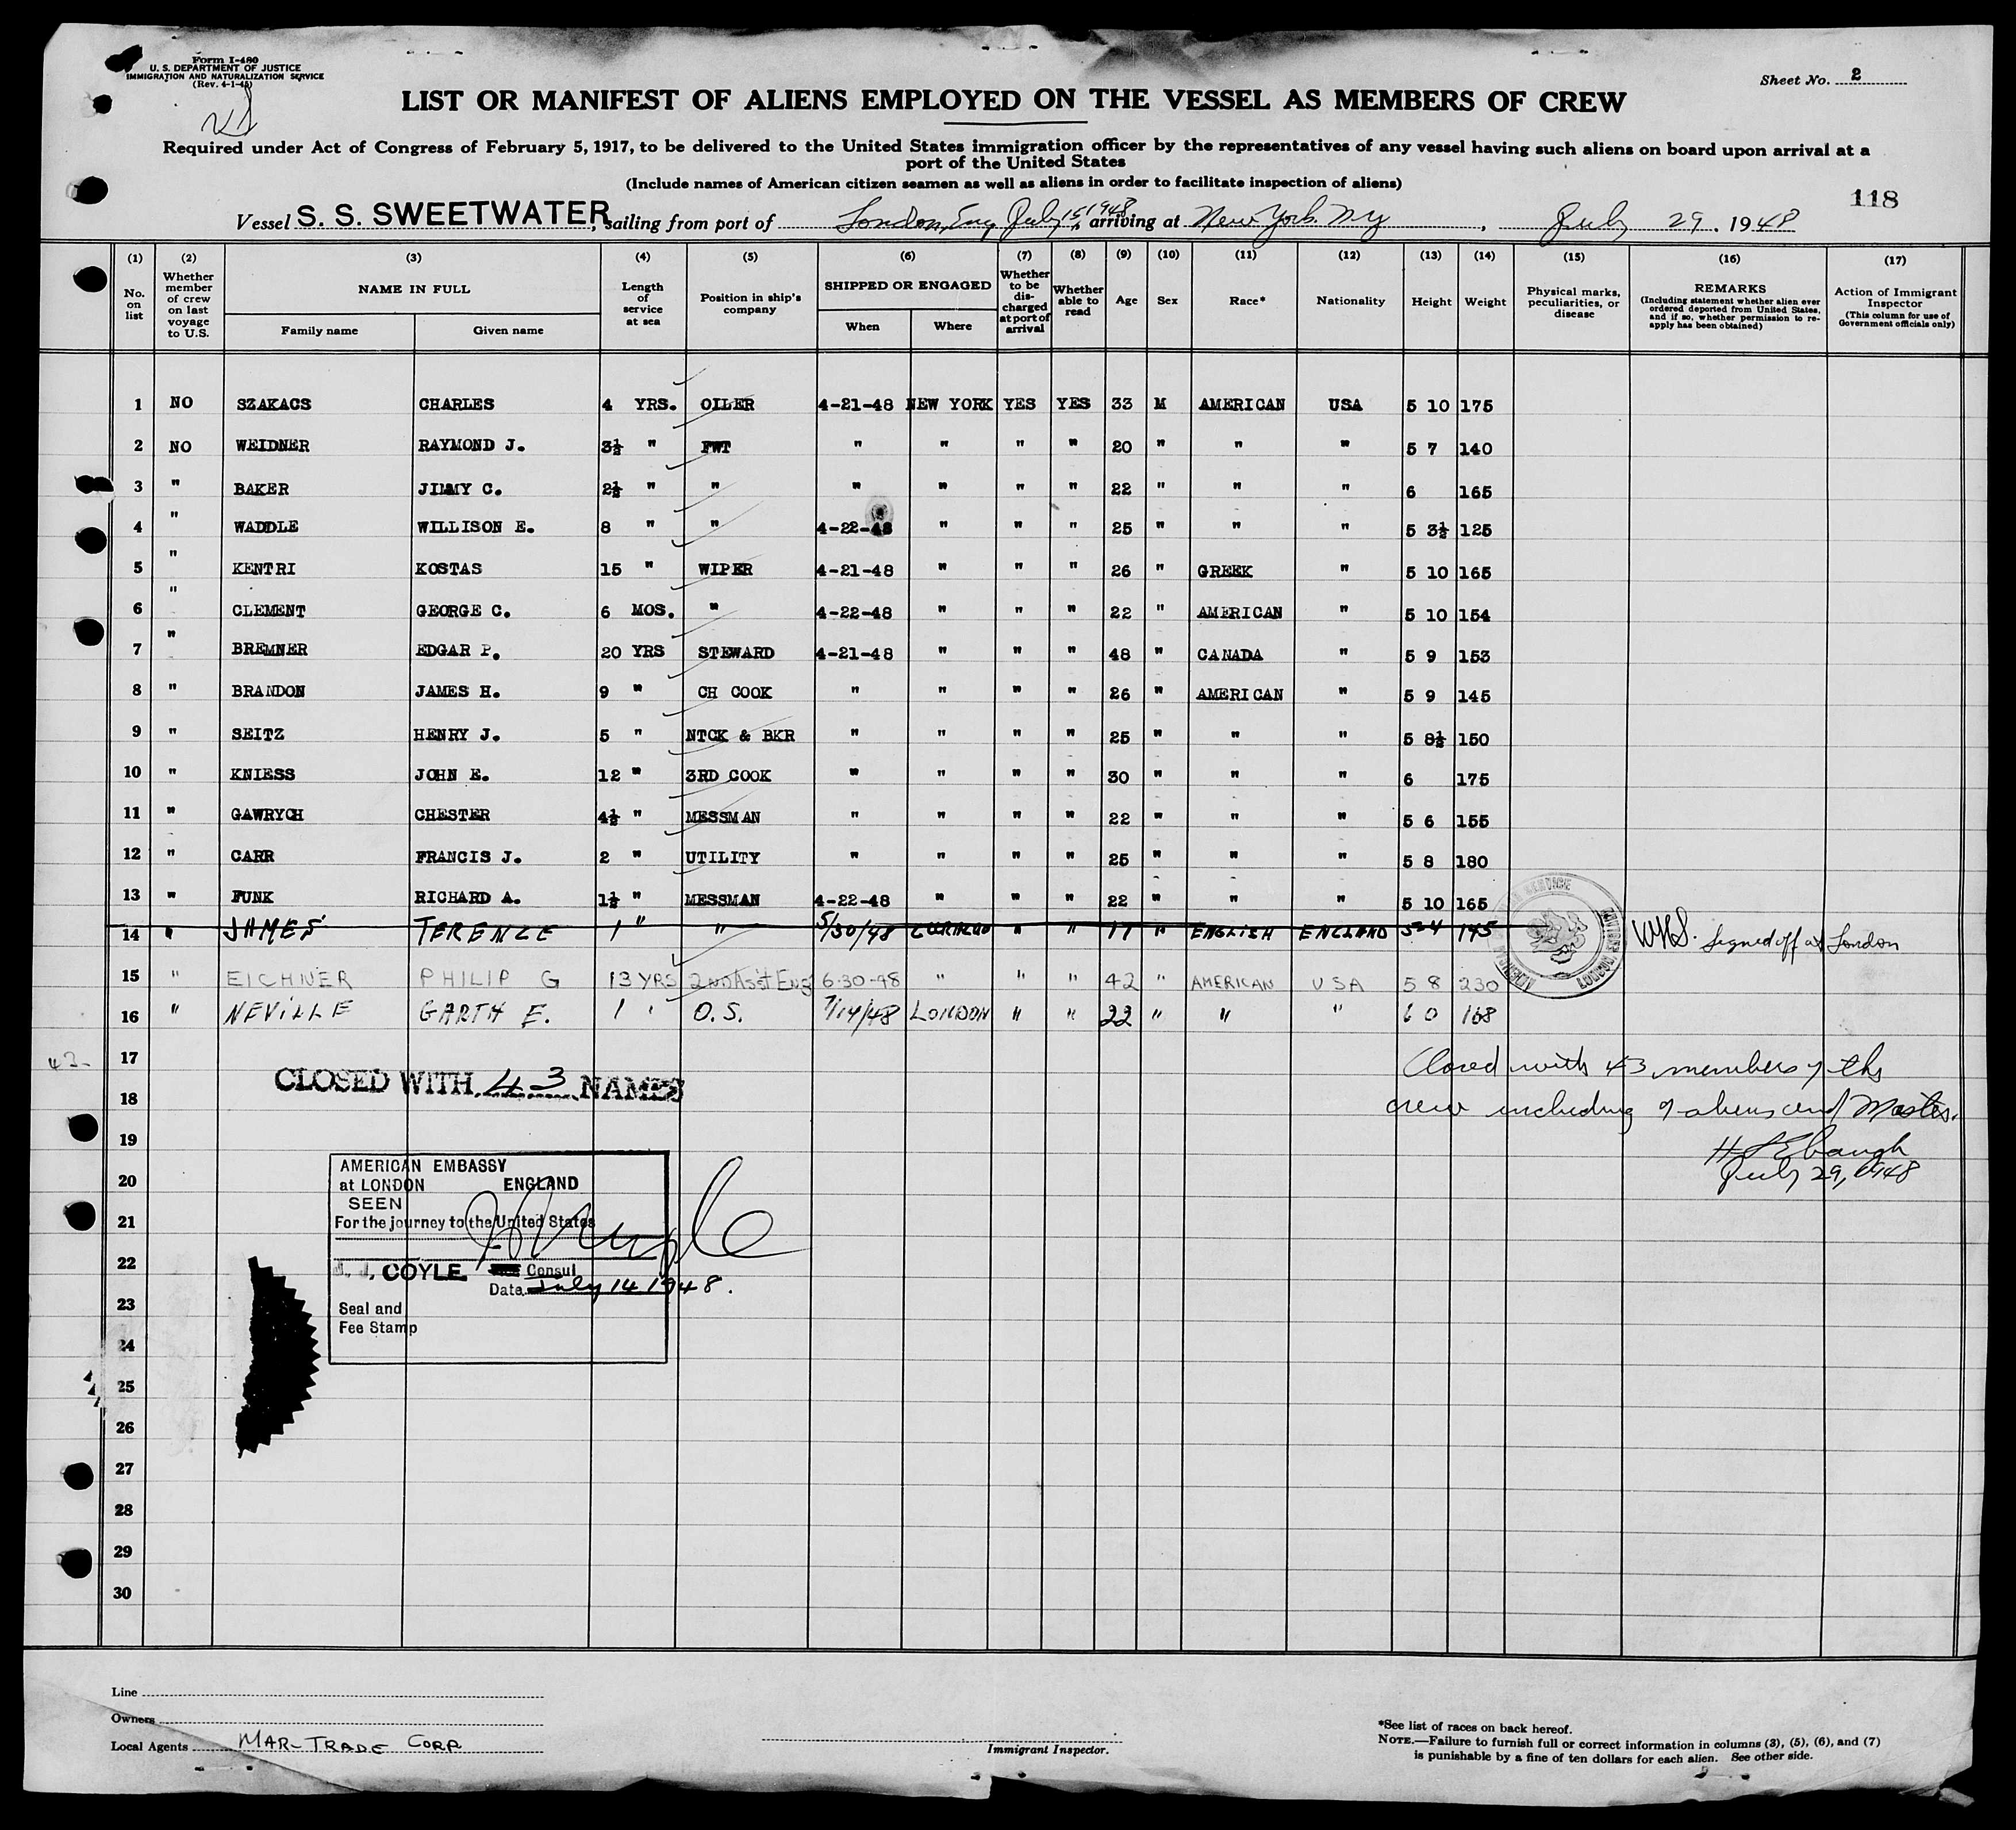 Form I-480
U. S. DEPARTMENT OF JUSTICE
IMMIGRATION AND NATURALIZATION SERVICE
(Rev. 4-1-45)
Sheet No. 2
LIST OR MANIFEST OF ALIENS EMPLOYED ON THE VESSEL AS MEMBERS OF CREW
Required under Act of Congress of February 5, 1917, to be delivered to the United States immigration officer by the representatives of any vessel having such aliens on board upon arrival at a
port of the United States
(Include names of American citizen seamen as well as aliens in order to facilitate inspection of aliens)
118
Vessel S. S. SWEETWATER, sailing from port of London, Eng, July 15, 1948, arriving at New York, NY, July 29, 1948
(1) (2) (3) (4) (5) (6) (7) (8) (9) (10) (11) (12) (13) (14) (15) (16) (17)
No. on list
Whether member of crew on last voyage to U.S.
NAME IN FULL
Family name Given name
Length of service at sea
Position in ship's company
SHIPPED OR ENGAGED
When Where
Whether to be discharged at port of arrival
Whether able to read
Age Sex Race* Nationality Height Weight
Physical marks, peculiarities, or disease
REMARKS
(Including statement whether alien ever ordered deported from United States, and if so, whether permission to re-apply has been obtained)
Action of Immigrant Inspector
(This column for use of Government officials only)
1 NO SZAKACS CHARLES 4 YRS. OILER 4-21-48 NEW YORK YES YES 33 M AMERICAN USA 5 10 175
2 NO WEIDNER RAYMOND J. 3½ " FWT " " " " 20 " " " 5 7 140
3 " BAKER JIMMY C. 2½ " " " " " " 22 " " " 6 165
4 " WADDLE WILLISON E. 8 " " 4-22-48 " " " 25 " " " 5 3½ 125
5 " KENTRI KOSTAS 15 " WIPER 4-21-48 " " " 26 " GREEK " 5 10 165
6 " CLEMENT GEORGE C. 6 MOS. " 4-22-48 " " " 22 " AMERICAN " 5 10 154
7 " BREMNER EDGAR P. 20 YRS STEWARD 4-21-48 " " " 48 " CANADA " 5 9 153
8 " BRANDON JAMES H. 9 " CH COOK " " " " 26 " AMERICAN " 5 9 145
9 " SEITZ HENRY J. 5 " NTCK & BKR " " " " 25 " " " 5 8½ 150
10 " KNIESS JOHN E. 12 " 3RD COOK " " " " 30 " " " 6 175
11 " GAWRYCH CHESTER 4½ " MESSMAN " " " " 22 " " " 5 6 155
12 " CARR FRANCIS J. 2 " UTILITY " " " " 25 " " " 5 8 180
13 " FUNK RICHARD A. 1½ " MESSMAN 4-22-48 " " " 22 " " " 5 10 165
14 " JAMES TERENCE 1 " " 5/30/48 CURACAO " " " ENGLISH ENGLAND 5-4 Signed off at London
15 " EICHNER PHILIP G 13 YRS 2ND Ass't Eng 6-30-48 " " " 42 " AMERICAN USA 5 8 230
16 " NEVILLE GARTH E. 1 " O.S. 7/14/48 LONDON " " 22 " " " 6 0 168
43-
17
Closed with 43 members of the
CLOSED WITH 43 NAMES
18
crew including 9 aliens and Master.
19
20
July 29, 1948
AMERICAN EMBASSY
at LONDON ENGLAND
SEEN
For the journey to the United States
21
22
J. J. COYLE Consul
Date July 14 1948.
23
Seal and
Fee Stamp
24
25
26
27
28
29
30
Line
Owners
Local Agents MAR-TRADE CORP
Immigrant Inspector.
*See list of races on back hereof.
NOTE.—Failure to furnish full or correct information in columns (3), (5), (6), and (7)
is punishable by a fine of ten dollars for each alien. See other side.